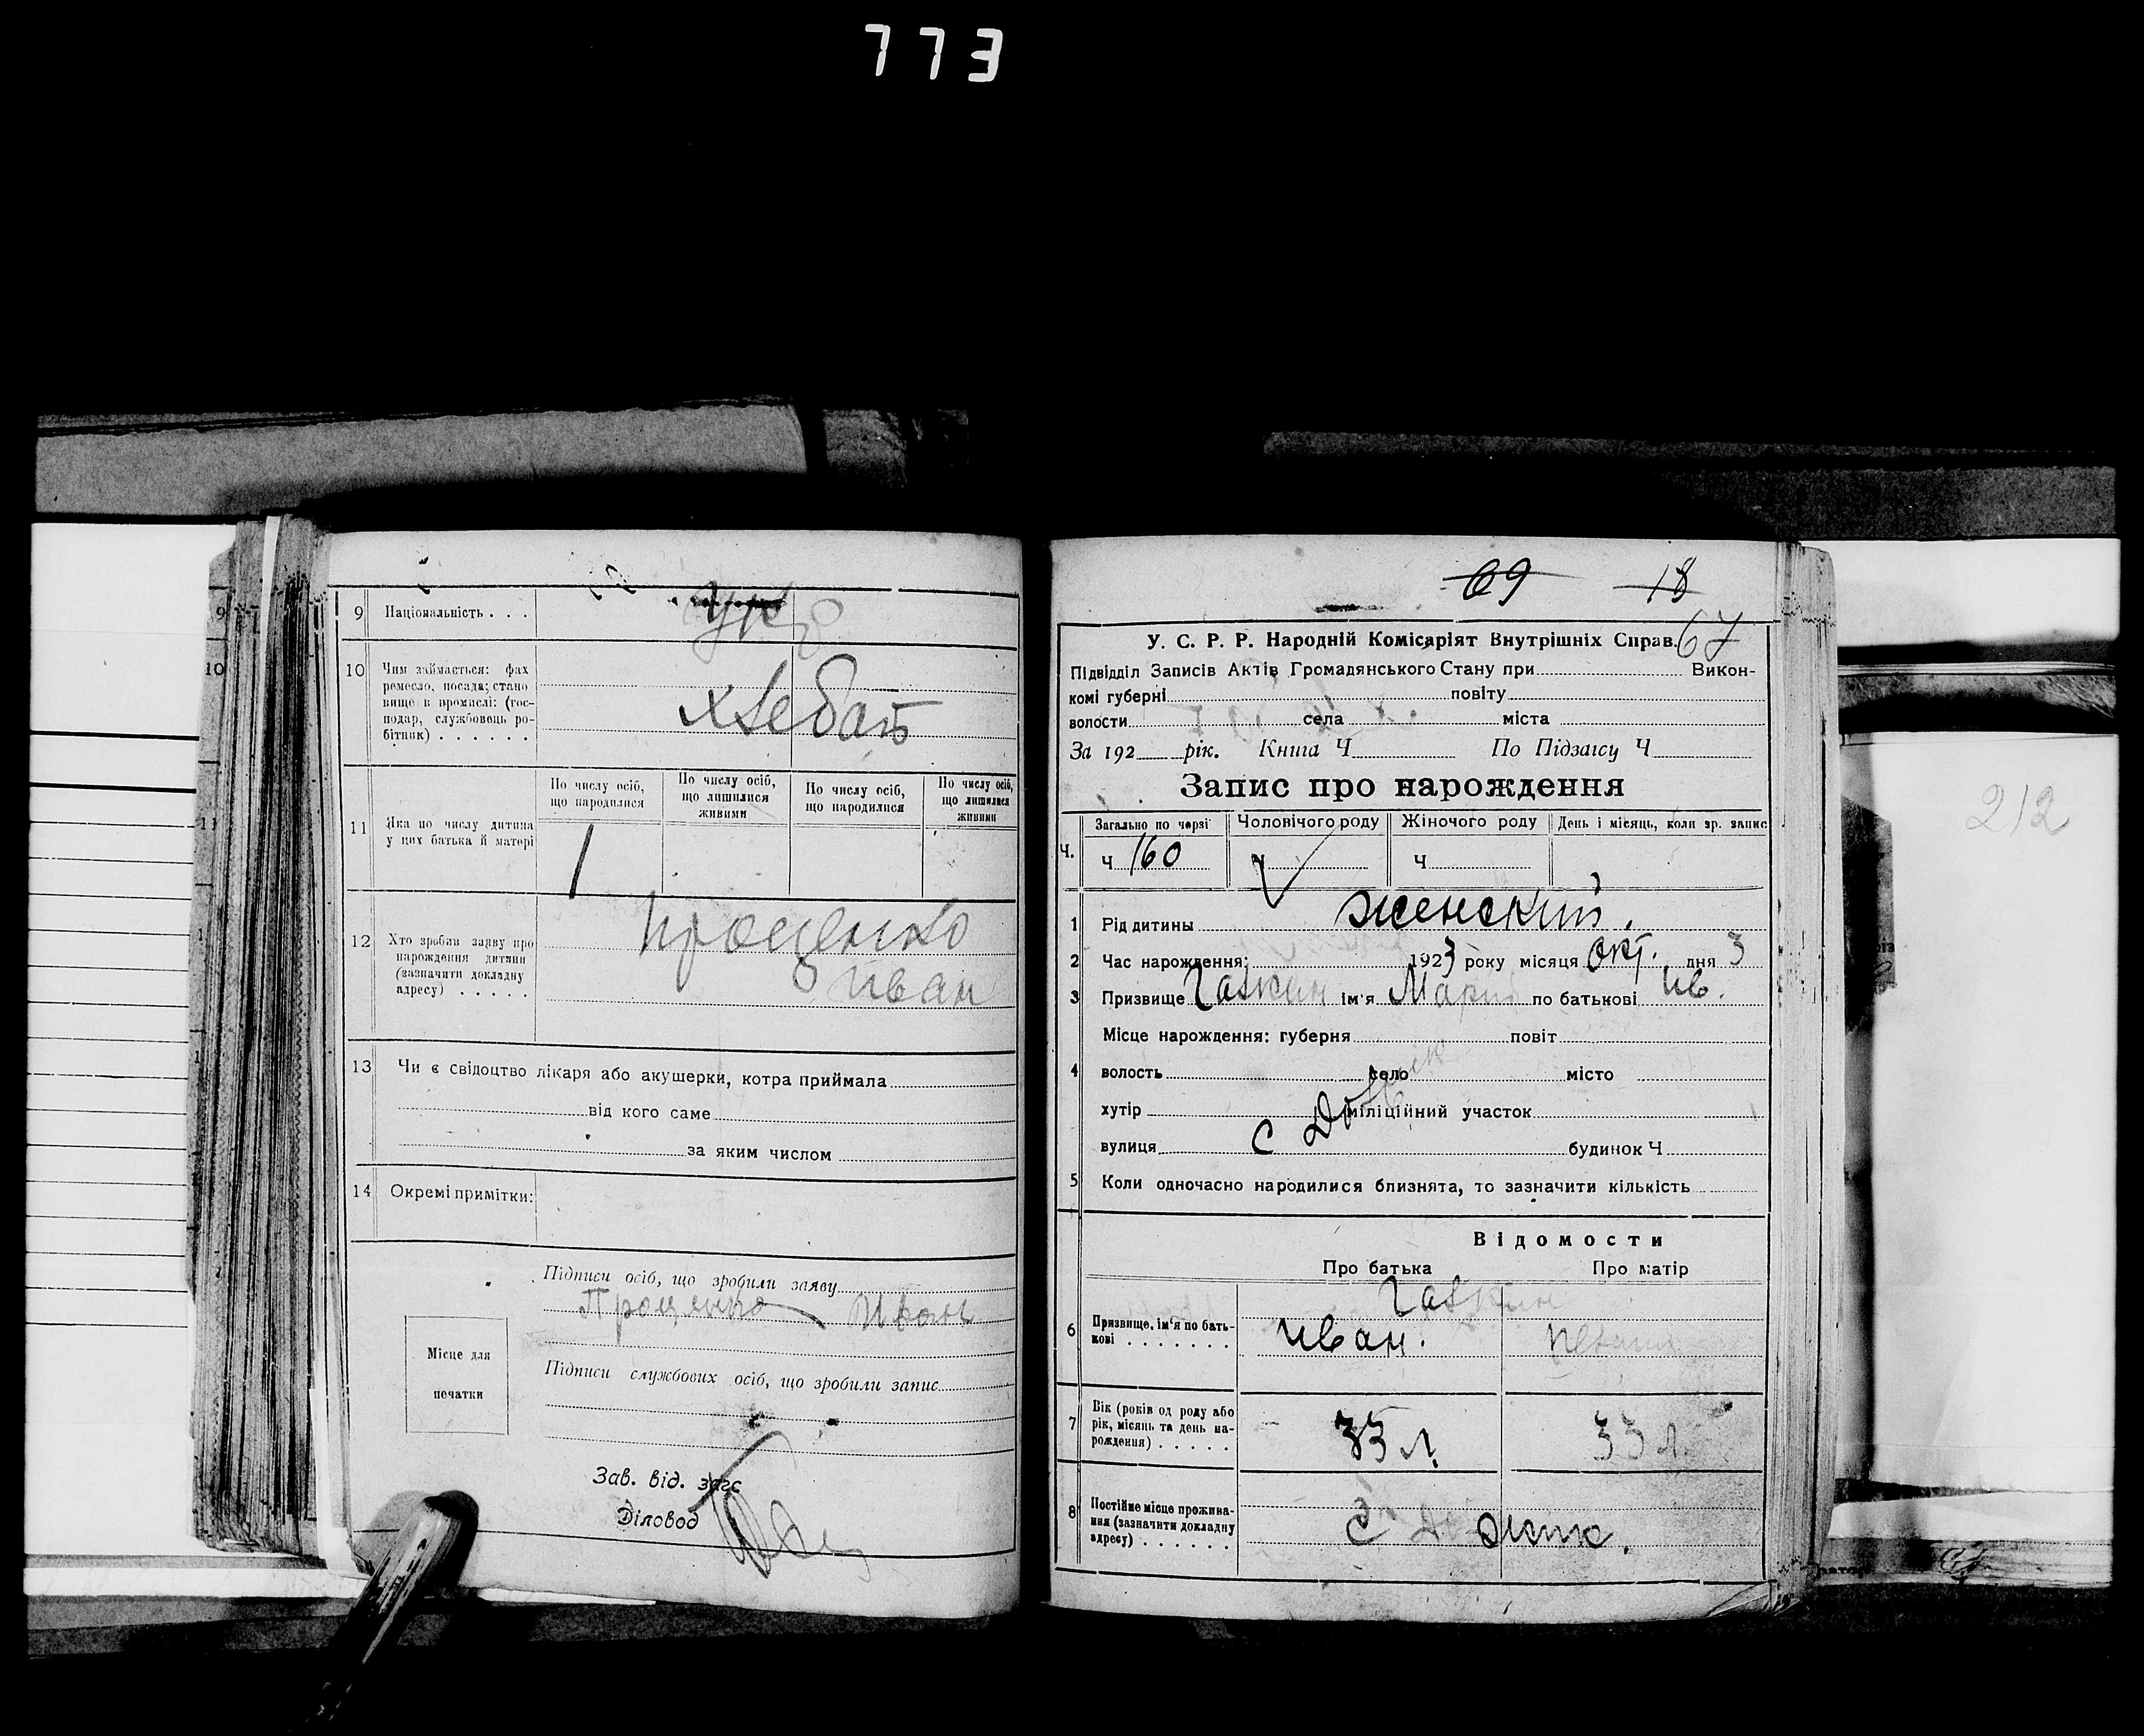 773
9 Національність . . . Укр
10 Чим займається: фах
ремесло, посада; стано
вище в промислі: (гос-
подар, службовець ро-
бітник) . . . . . .
хлебоп
11 Яка по числу дитина
у цих батька й матері
По числу осіб,
що народилися
По числу осіб,
що лишилися
живими
По числу осіб,
що народилися
По числу осіб,
що лишилися
живими
1
12 Хто зробив заяву про
нарождення дитини
(зазначити докладну
адресу) . . . . .
Проценко
Иван
13 Чи є свідоцтво лікаря або акушерки, котра приймала
від кого саме
за яким числом
14 Окремі примітки:
Підписи осіб, що зробили заяву
Проценко Иван
Місце для
печатки
Підписи службових осіб, що зробили запис
Зав. від. загс
Діловод
69 18
67
У. С. Р. Р. Народній Комісаріят Внутрішніх Справ.
Підвідділ Записів Актів Громадянського Стану при Викон-
комі губерні повіту
волости села міста
За 192 рік. Книга Ч По Підзагсу Ч
Запис про нарождення
Ч. Загально по черзі Чоловічого роду Жіночого роду День і місяць, коли зр. запис
Ч 160 Ч Ч
1 Рід дитины женский.
2 Час нарождення: 1923 року місяця окт. дня 3
3 Призвище Галкин ім'я Мария по батькові Ив.
Місце нарождення: губерня повіт
4 волость село місто
хутір міліційний участок
вулиця с будинок Ч
5 Коли одночасно народилися близнята, то зазначити кількість
Відомости
Про батька Про матір
6 Призвище, ім'я по бать-
кові . . . . . . .
Галкин
Иван.
7 Вік (років од роду або
рік, місяць та день на-
рождення) . . . . .
33 л. 33 л.
8 Постійне місце прожива-
ння (зазначити докладну
адресу) . . . . . .
с
212